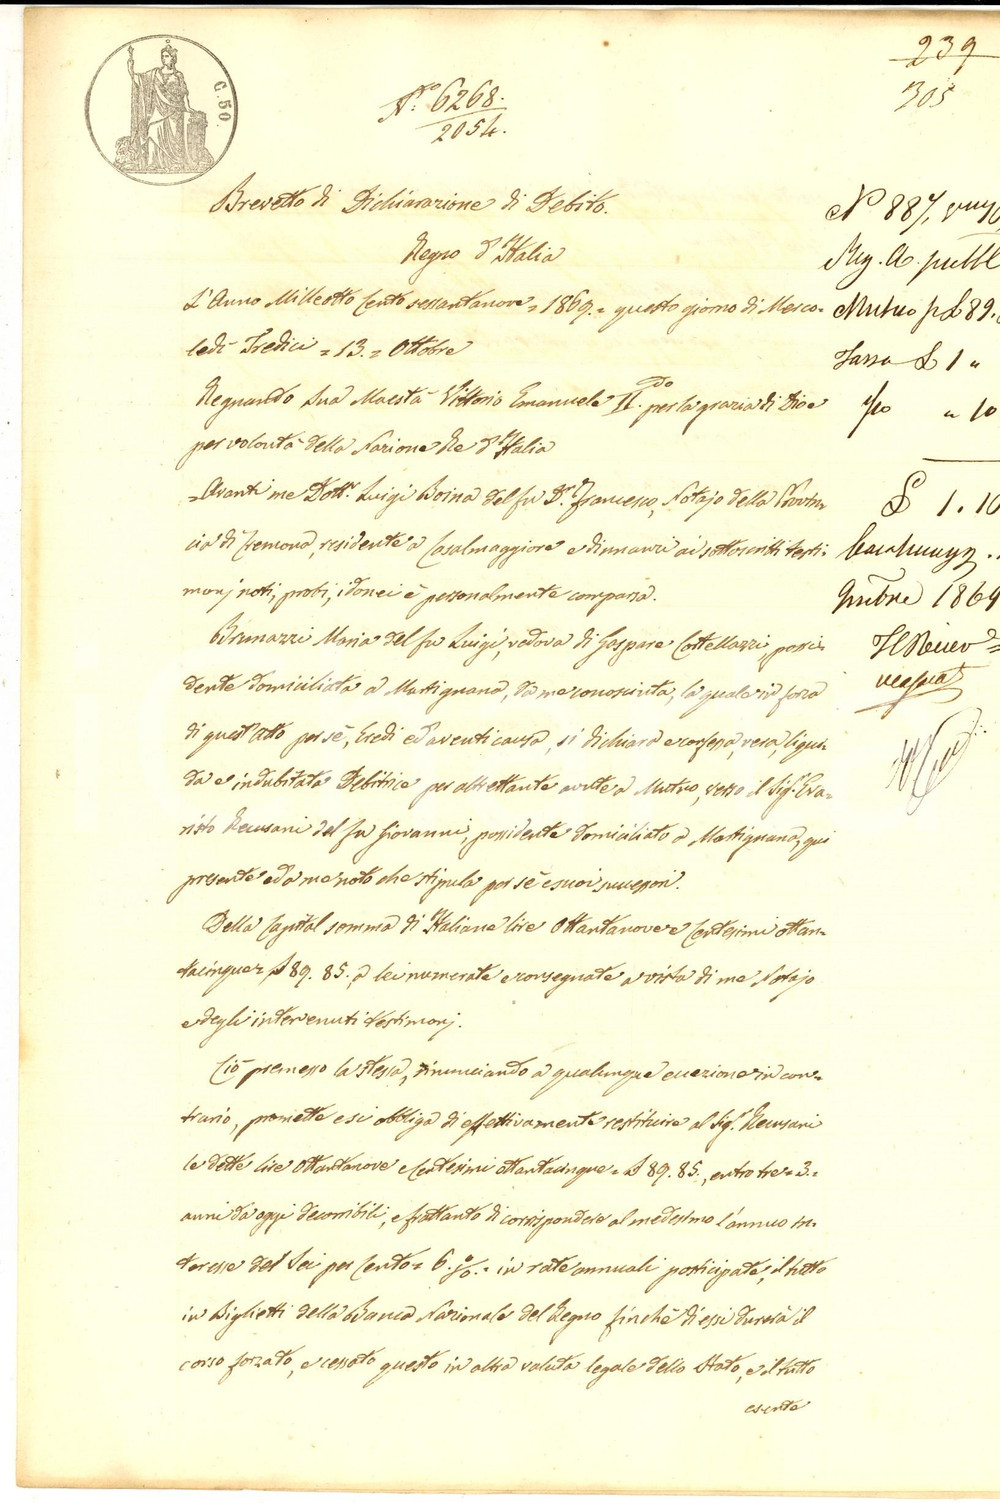 C. 50.
239
305
N.º 6268.
2054.
Brevetto di Dichiarazione di Debito.
Regno d'Italia
L'Anno Milleotto Cento sessantanove = 1869. = questo giorno di Merco-
ledì Tredici = 13. = Ottobre
Regnando Sua Maestà Vittorio Emanuele II.do per la grazia di Dio e
per volontà della Nazione Re d'Italia
Avanti me Dott.r Luigi Boina del fu D.r Francesco, Notajo della Provin-
cia di Cremona, residente a Casalmaggiore e dinnanzi ai sottoscritti testi-
monj noti, probi, idonei è personalmente comparsa.
Brunazzi Maria del fu Luigi, vedova di Gaspare Cortellazzi, possi-
dente domiciliata a Martignana, da me conosciuta, la quale in forza
di quest'atto per sè, Eredi ed aventi causa, si dichiara e confessa, vera, liqui-
da e indubitata Debitrice per altrettante avute a Mutuo, verso il Sig.r Eva-
risto Recusani del fu Giovanni, possidente domiciliato a Martignana, qui
presente ed a me noto che stipula per sè e suoi successori.
Della Capital somma di Italiane lire Ottantanove e Centesimi ottan-
tacinque = £ 89. 85. a lei numerate e consegnate a vista di me Notajo
e degli intervenuti testimonj.
Ciò premesso la stessa, rinunciando a qualunque eccezione in con-
trario, promette e si obbliga di effettivamente restituire al Sig.r Recusani
le dette lire Ottantanove e Centesimi ottantacinque = £ 89. 85., entro tre = 3. =
anni da oggi decorribili, e frattanto di corrispondere al medesimo l'annuo in-
teresse del Sei per Cento = 6. %. = in rate annuali posticipate, il tutto
in Biglietti della Banca Nazionale del Regno finchè di essi durerà il
corso forzato, e cessato questo in altra valuta legale dello Stato, e il tutto
esente
N.º 887,
Reg. A. pubbl
Mutuo p £ 89.
Tassa £ 1 "
1/10 " 10
£ 1. 10
1869
Il Ricev